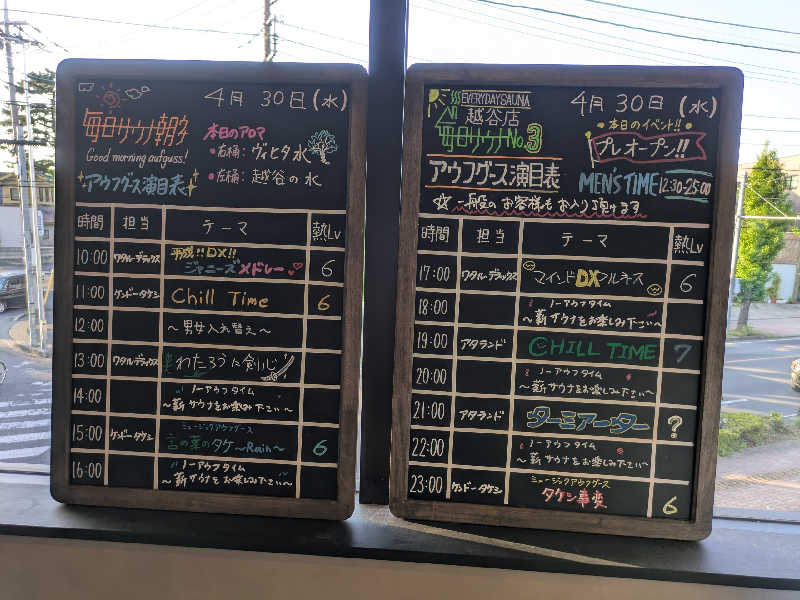 4月 30日(水)
毎日サウナ朝の
Good morning aufguss!
アウフグース演目表
本日のアロマ
・右桶:ヴィヒタ水
・左桶:越谷の水
時間 担当 テーマ 熱Lv
10:00 ワタル・デラックス 平成!!DX!! ジャニーズメドレー 6
11:00 ケンドータケシ Chill Time 6
12:00 ~男女入れ替え~
13:00 ワタル・デラックス わたろうに剣心
14:00 ノーアウフタイム
~薪サウナをお楽しみ下さい~
15:00 ケンドータケシ ミュージックアウフグース
言の葉のタケ~Rain~ 6
16:00 ノーアウフタイム
~薪サウナをお楽しみ下さい~
EVERYDAYSAUNA
越谷店
毎日サウナNo.3
アウフグース演目表
4月 30日(水)
本日のイベント!!
プレオープン!!
MEN'S TIME 12:30-25:00
☆一般のお客様もお入り頂けます
時間 担当 テーマ 熱Lv
17:00 ワタル・デラックス マインドDXフルネス 6
18:00 ノーアウフタイム
~薪サウナをお楽しみ下さい~
19:00 アタランド CHILL TIME 7
20:00 ノーアウフタイム
~薪サウナをお楽しみ下さい~
21:00 アタランド ターミアーター ?
22:00 ノーアウフタイム
~薪サウナをお楽しみ下さい~
23:00 ケンドータケシ ミュージックアウフグース
タケシ事変 6